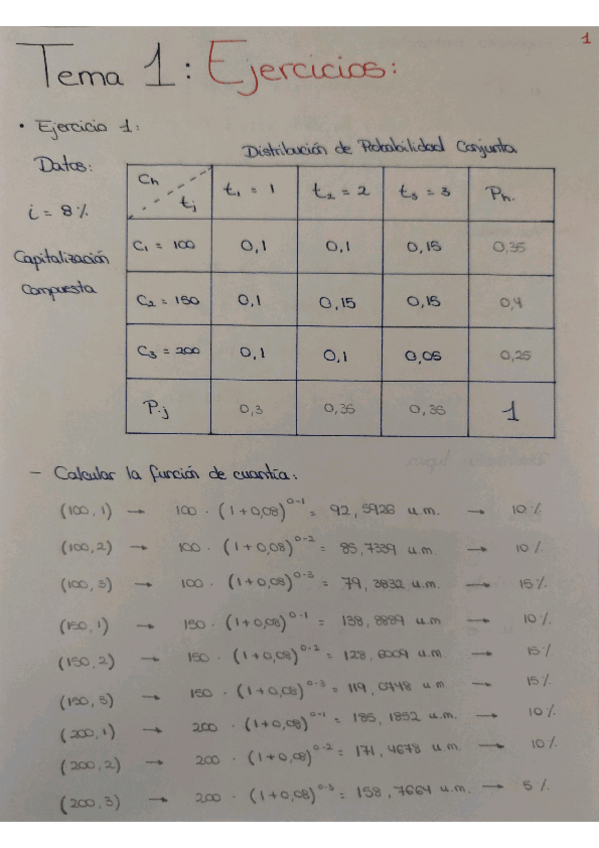 1
Tema 1: Ejercicios:
• Ejercicio 1:
Distribución de Probabilidad Conjunta
Datos:
i = 8%
Capitalización
Compuesta
Ch tj t₁ = 1 t₂ = 2 t₃ = 3 Ph.
C₁ = 100 0,1 0,1 0,15 0,35
C₂ = 150 0,1 0,15 0,15 0,4
C₃ = 200 0,1 0,1 0,05 0,25
P.j 0,3 0,35 0,35 1
- Calcular la función de cuantía:
(100,1) → 100 · (1+0,08)^0-1 = 92,5926 u.m. → 10%
(100,2) → 100 · (1+0,08)^0-2 = 85,7339 u.m. → 10%
(100,3) → 100 · (1+0,08)^0-3 = 79,3832 u.m. → 15%
(150,1) → 150 · (1+0,08)^0-1 = 138,8889 u.m → 10%
(150,2) → 150 · (1+0,08)^0-2 = 128,6009 u.m. → 15%
(150,3) → 150 · (1+0,08)^0-3 = 119,0748 u.m. → 15%
(200,1) → 200 · (1+0,08)^0-1 = 185,1852 u.m. → 10%
(200,2) → 200 · (1+0,08)^0-2 = 171,4678 u.m. → 10%
(200,3) → 200 · (1+0,08)^0-3 = 158,7664 u.m. → 5%